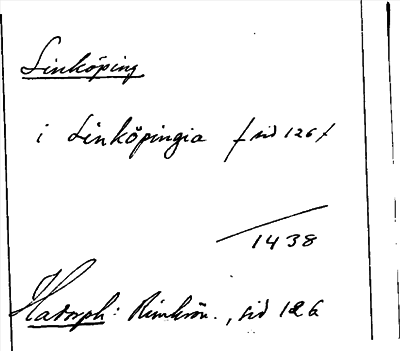 Linköping
i Linköpingia /sid 126/
1438
Hadorph: Rimkrön., sid 126